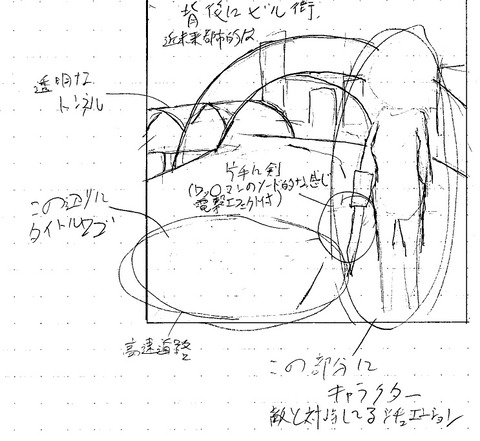 背後にビル街.
近未来都市的な
透明な
トンネル
片手に剣
(ロックマンのソード的な感じ
電撃エフェクト付)
この辺に
タイトルロゴ
高速道路
この部分に
キャラクター
敵と対峙してるシチュエーション